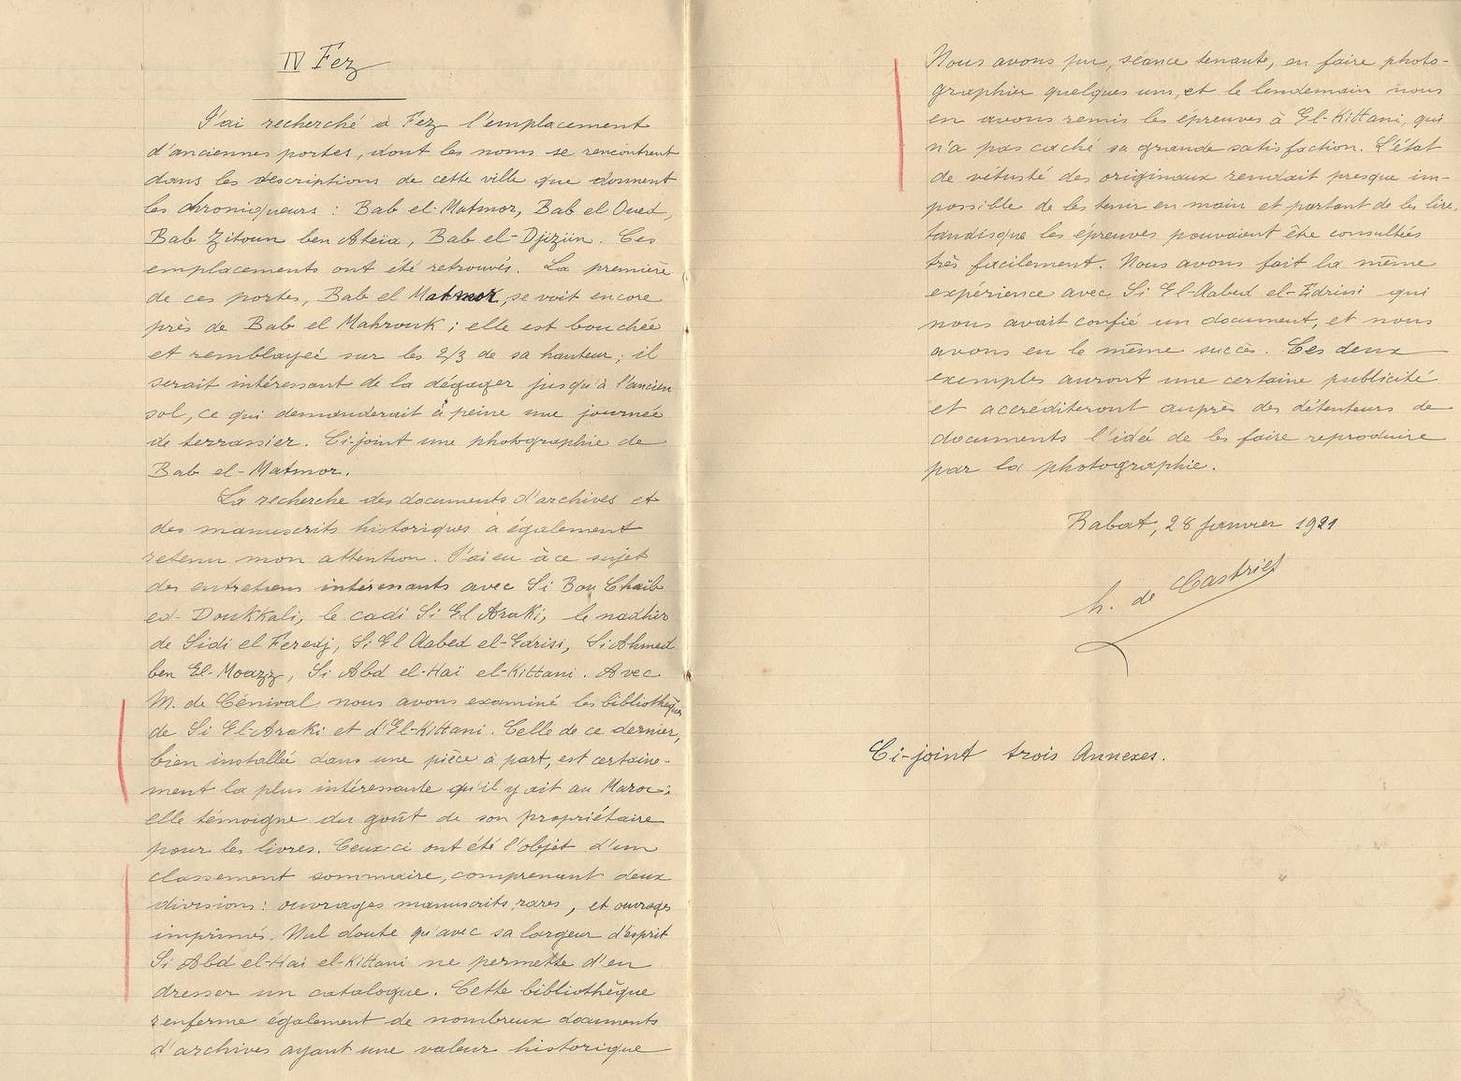 IV Fez
J'ai recherché à Fez l'emplacement
d'anciennes portes, dont les noms se rencontrent
dans les descriptions de cette ville que donnent
les chroniqueurs : Bab el-Matmor, Bab el Oued,
Bab Zitoun ben Ateïa, Bab el-Djizün. Ces
emplacements ont été retrouvés. La première
de ces portes, Bab el Matmor, se voit encore
près de Bab el Mahrouk ; elle est bouchée
et remblayée sur les 2/3 de sa hauteur ; il
serait intéressant de la dégager jusqu'à l'ancien
sol, ce qui demanderait à peine une journée
de terrassier. Ci-joint une photographie de
Bab el-Matmor.
La recherche des documents d'archives et
des manuscrits historiques a également
retenu mon attention. J'ai eu à ce sujet
des entretiens intéressants avec Si Bou Chaïb
ed-Doukkali, le cadi Si El Araki, le nadhir
de Sidi el Feredj, Si El Aabed el-Edrisi, Si Ahmed
ben El-Moazz, Si Abd el-Haï el-Kittani. Avec
M. de Cénival nous avons examiné les bibliothèques
de Si El-Araki et d'El-Kittani. Celle de ce dernier,
bien installée dans une pièce à part, est certaine-
ment la plus intéressante qu'il y ait au Maroc ;
elle témoigne du goût de son propriétaire
pour les livres. Ceux ci ont été l'objet d'un
classement sommaire, comprenant deux
divisions : ouvrages manuscrits rares, et ouvrages
imprimés. Nul doute qu'avec sa largeur d'esprit
Si Abd el-Haï el-Kittani ne permette d'en
dresser un catalogue. Cette bibliothèque
renferme également de nombreux documents
d'archives ayant une valeur historique
Nous avons pu, séance tenante, en faire photo-
graphier quelques uns, et le lendemain nous
en avons remis les épreuves à El-Kittani, qui
n'a pas caché sa grande satisfaction. L'état
de vétusté des originaux rendait presque im-
possible de les tenir en main et partant de les lire,
tandisque les épreuves pouvaient être consultées
très facilement. Nous avons fait la même
expérience avec Si El-Aabed el-Edrisi qui
nous avait confié un document, et nous
avons eu le même succès. Ces deux
exemples auront une certaine publicité
et accréditeront auprès des détenteurs de
documents l'idée de les faire reproduire
par la photographie.
Rabat, 28 Janvier 1921
h. de Castries
Ci-joint trois Annexes.